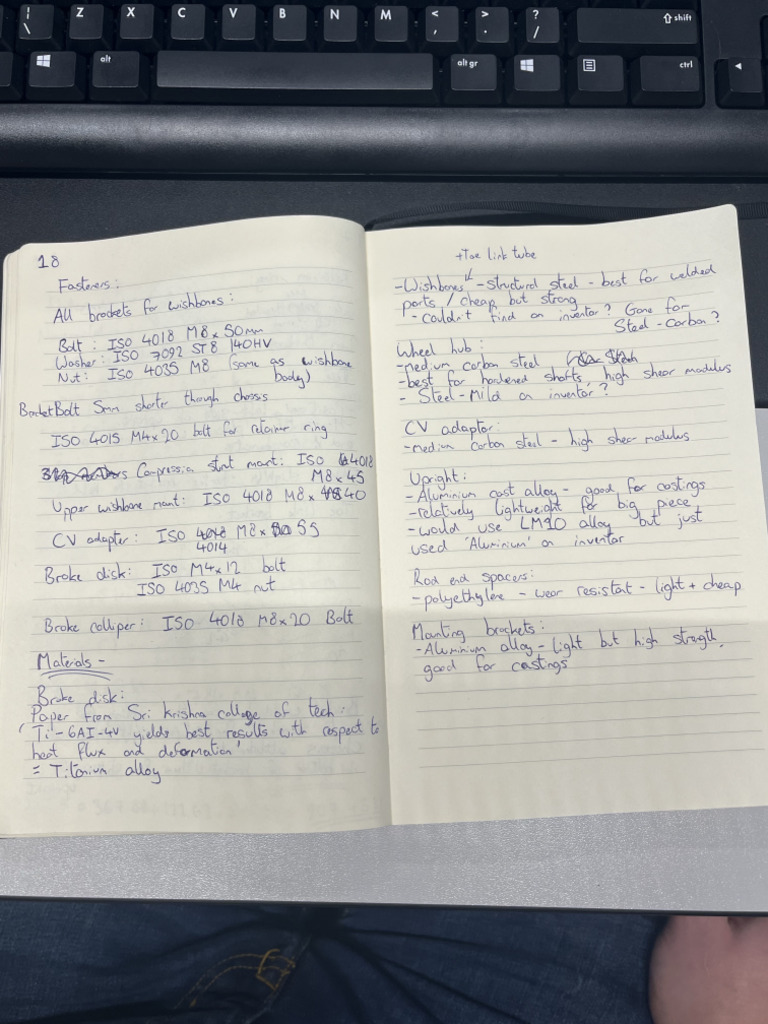 | \
Z
X
C
V
B
N
M
< ,
> .
? /
⇧ shift
alt
alt gr
ctrl
18
Fasteners:
All brackets for wishbones:
Bolt: ISO 4018 M8 x 50mm
Washer: ISO 7092 ST8 140HV
Nut: ISO 4035 M8 (same as wishbone
body)
Bracket Bolt 5mm shorter through chassis
ISO 4015 M4x20 bolt for retainer ring
Compression strut mount: ISO 4018
M8 x 45
Upper wishbone mount: ISO 4018 M8 x 40
CV adapter: ISO 4018 M8 x 55
4014
Brake disk: ISO M4x12 bolt
ISO 4035 M4 nut
Brake calliper: ISO 4018 M8x20 Bolt
Materials -
Brake disk:
Paper from Sri Krishna college of tech:
'Ti-6Al-4V yields best results with respect to
heat flux and deformation'
= Titanium alloy
+Toe link tube
-Wishbones - structural steel - best for welded
parts / cheap but strong
- couldn't find on inventor? Gone for
Steel-Carbon?
Wheel hub:
-medium carbon steel
-best for hardened shafts, high shear modulus
- Steel-Mild on inventor?
CV adaptor:
-medium carbon steel - high shear modulus
Upright:
-Aluminium cast alloy - good for castings
-relatively lightweight for big piece
-would use LM20 alloy but just
used 'Aluminium' on inventor
Rod end spacers:
-polyethylene - wear resistant - light + cheap
Mounting brackets:
-Aluminium alloy - light but high strength,
good for castings